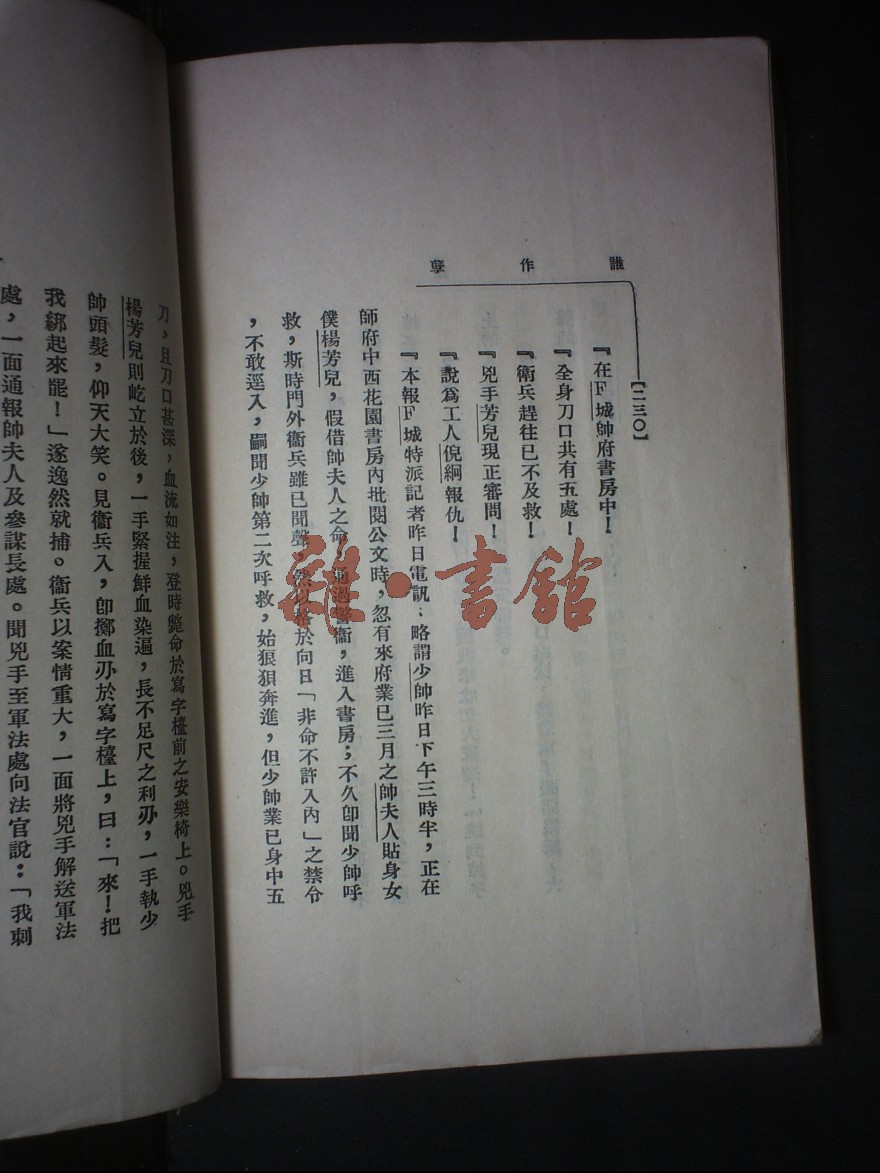 誰作孽
【二三〇】
『在F城帥府書房中！
『全身刀口共有五處！
『衛兵趕往已不及救！
『兇手芳兒現正審問！
『說爲工人倪綱報仇！
『本報F城特派記者昨日電訊：略謂少帥昨日下午三時半，正在
師府中西花園書房內批閱公文時，忽有來府業已三月之帥夫人貼身女
僕楊芳兒，假借帥夫人之命，通過警衞，進入書房；不久卽聞少帥呼
救，斯時門外衞兵雖已聞聲，然以格於向日「非命不許入內」之禁令
，不敢逕入，嗣聞少帥第二次呼救，始狼狽奔進，但少帥業已身中五
刀，且刀口甚深，血流如注，登時斃命於寫字檯前之安樂椅上。兇手
楊芳兒則屹立於後，一手緊握鮮血染遍，長不足尺之利刃，一手執少
帥頭髮，仰天大笑。見衞兵入，卽擲血刃於寫字檯上，曰：「來！把
我綁起來罷！」遂逸然就捕。衞兵以案情重大，一面將兇手解送軍法
處，一面通報帥夫人及參謀長處。聞兇手至軍法處向法官說：「我刺
雜·書館